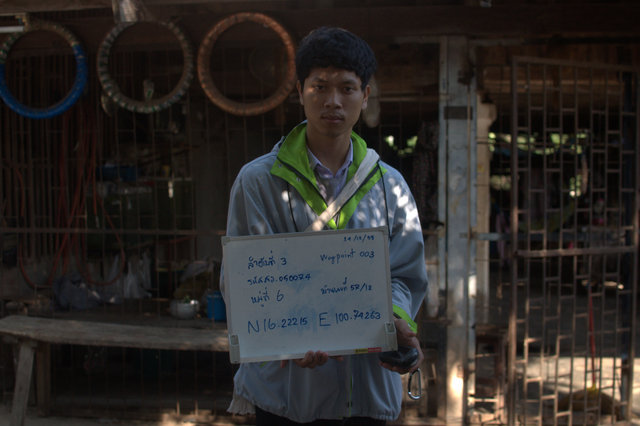 14/12/55
ลำดับที่ 3 Waypoint 003
รหัสสว.050074
หมู่ที่ 6 บ้านเลขที่ 57/12
N16.22215 E 100.74263